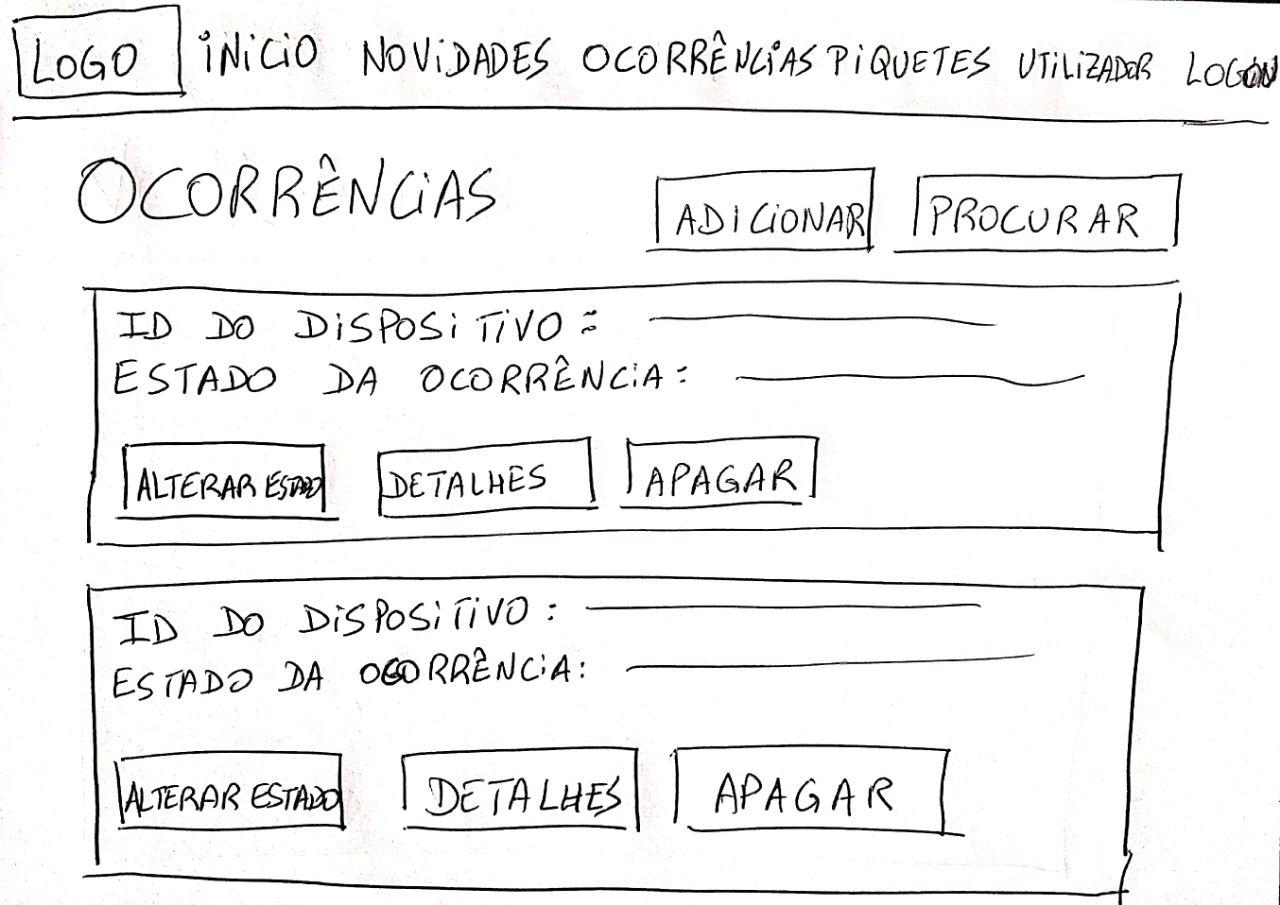 LOGO INICIO NOVIDADES OCORRÊNCIAS PIQUETES UTILIZADOR
OCORRÊNCIAS ADICIONAR PROCURAR
ID DO DISPOSITIVO:
ESTADO DA OCORRÊNCIA:
ALTERAR ESTADO DETALHES APAGAR
ID DO DISPOSITIVO:
ESTADO DA OCORRÊNCIA:
ALTERAR ESTADO DETALHES APAGAR